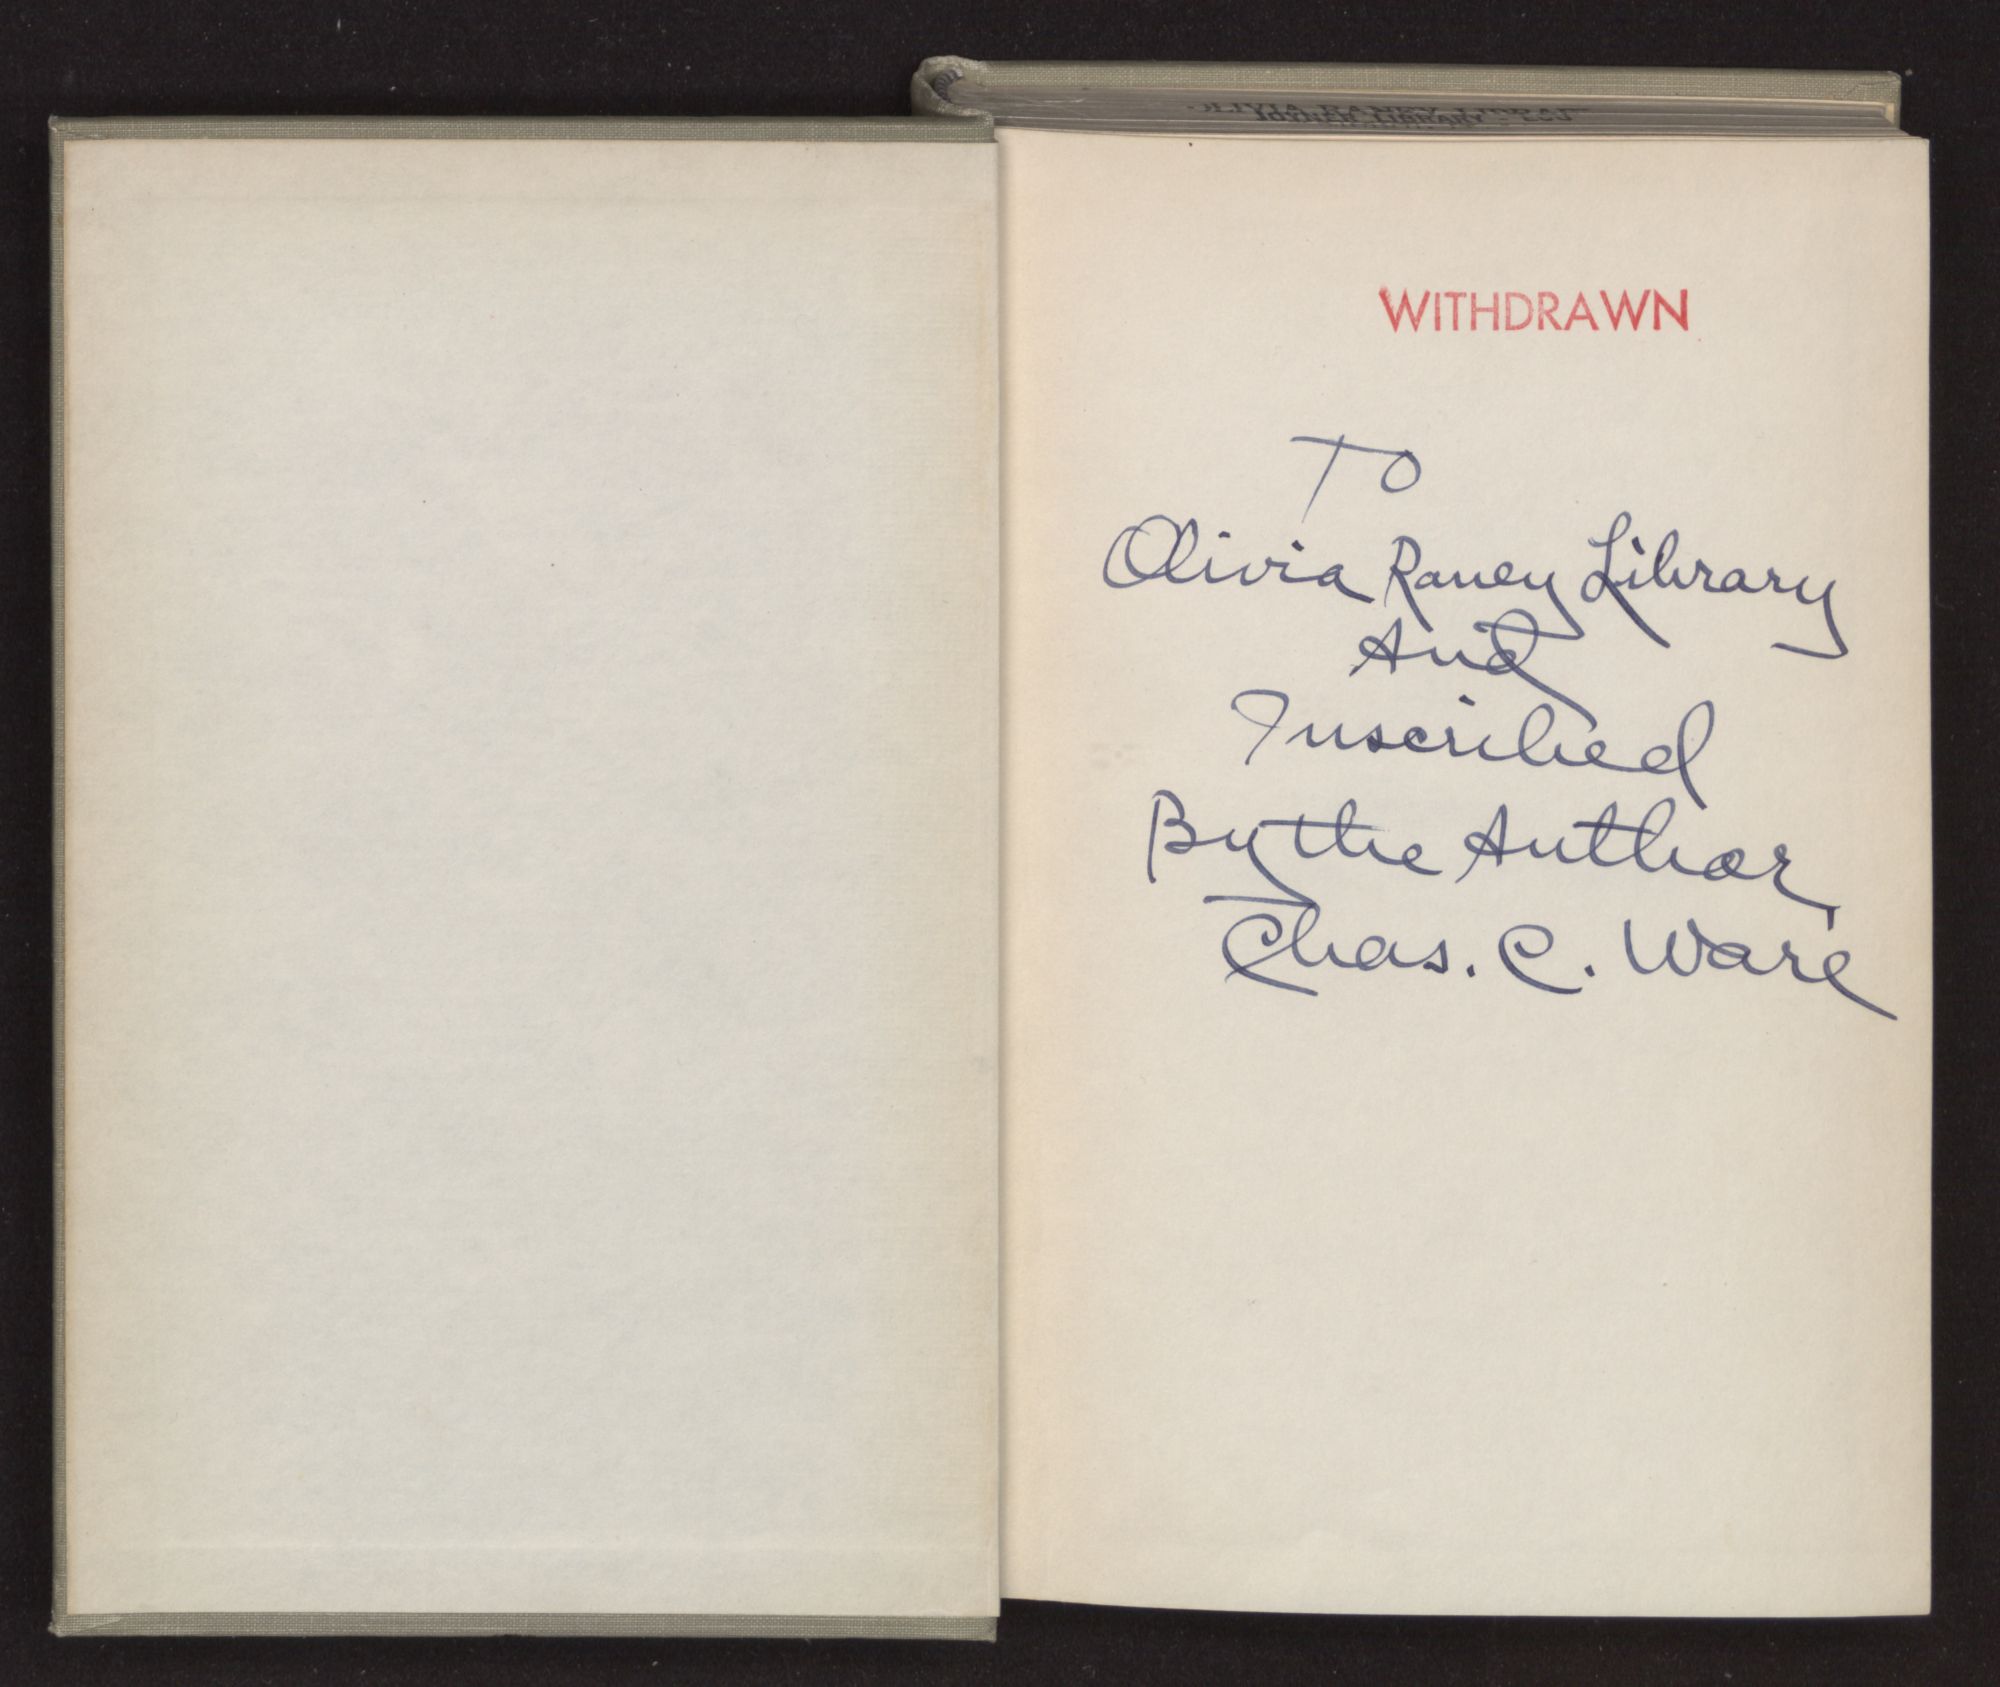 OLIVIA RANEY LIBRARY
JOYNER LIBRARY - ECU
WITHDRAWN
To
Olivia Raney Library
And
Inscribed
By the Author,
Chas. C. Ware